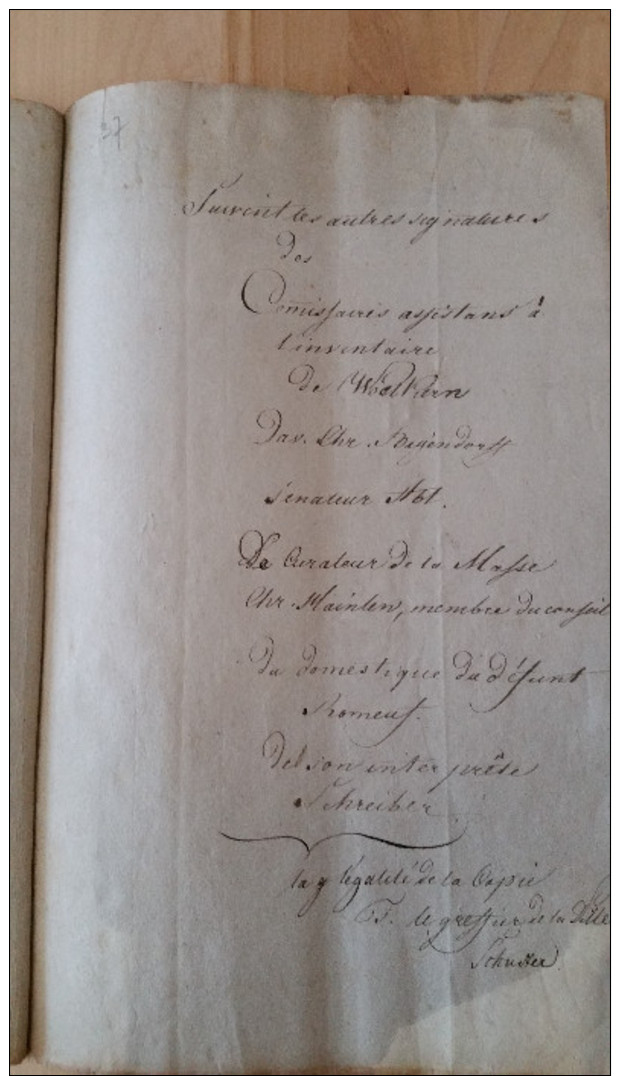 37
Suivent les autres signatures
des
Commissaires assistans à
l'inventaire
De
Dav. Chr.
sénateur Abt.
Le Curateur de la Masse
Chr. Mainlen, membre du conseil
Du domestique du défunt
Romeuf.
De son interprète
Schreiber
légalité de la Copie
le greffier de la Ville
Schuster